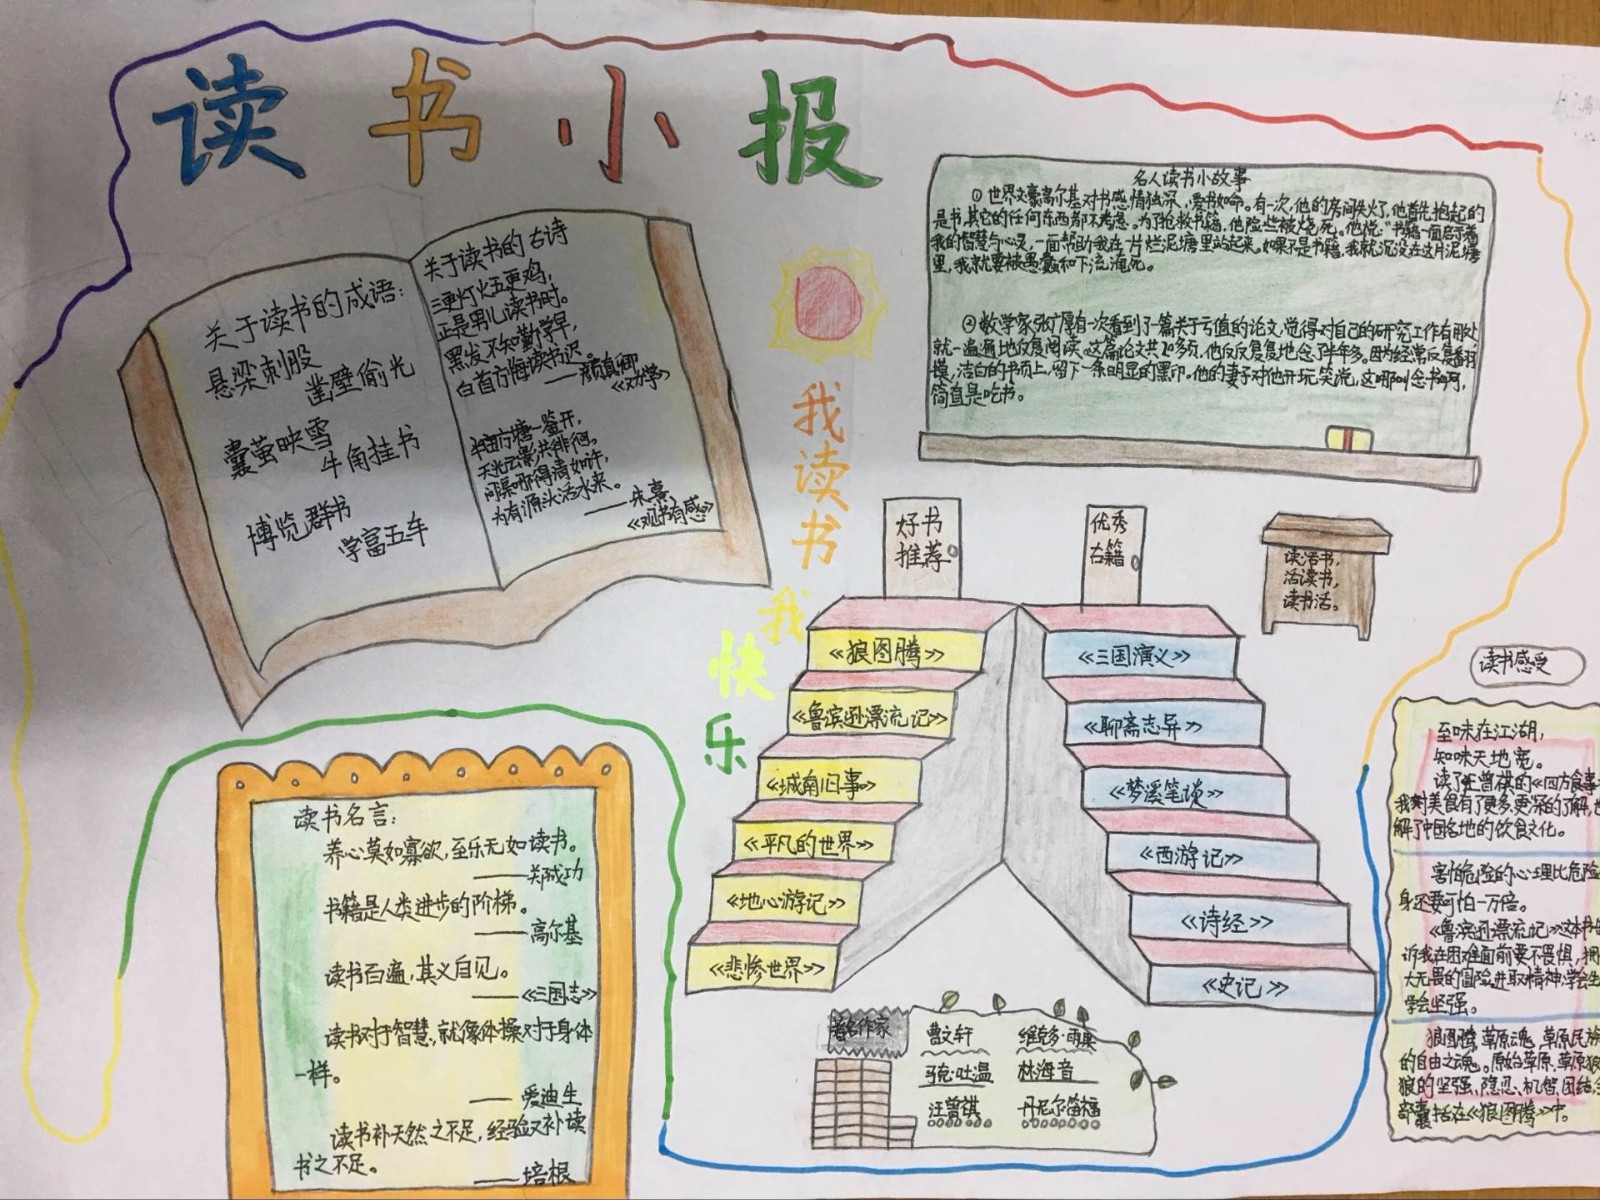 读书小报
关于读书的成语:
悬梁刺股
凿壁偷光
囊萤映雪
牛角挂书
博览群书
学富五车
关于读书的古诗
三更灯火五更鸡,
正是男儿读书时。
黑发不知勤学早,
白首方悔读书迟。
——颜真卿
《劝学》
半亩方塘一鉴开,
天光云影共徘徊。
问渠那得清如许,
为有源头活水来。
——朱熹
《观书有感》
我读书我快乐
名人读书小故事
①世界文豪高尔基对书感情独深,爱书如命。有一次,他的房间失火了,他首先抱起的
是书,其它的任何东西都不考虑。为了抢救书籍,他险些被烧死。他说:“书籍一面启示着
我的智慧与心灵,一面帮助我在一片烂泥塘里站起来,如果不是书籍,我就沉没在这片泥塘
里,我就要被愚蠢和下流淹死。
②数学家张广厚有一次看到了一篇关于亏值的论文,觉得对自己的研究工作有用处,
就一遍遍地反复阅读。这篇论文共20多页,他反反复复地念了半年多。因为经常反复翻
摸,洁白的书页上,留下一条明显的黑印。他的妻子对他开玩笑说,这哪叫念书啊,
简直是吃书。
好书
推荐
《狼图腾》
《鲁滨逊漂流记》
《城南旧事》
《平凡的世界》
《地心游记》
《悲惨世界》
优秀
古籍
《三国演义》
《聊斋志异》
《梦溪笔谈》
《西游记》
《诗经》
《史记》
读活书,
活读书,
读书活。
读书名言:
养心莫如寡欲,至乐无如读书。
——郑成功
书籍是人类进步的阶梯。
——高尔基
读书百遍,其义自见。
——《三国志》
读书对于智慧,就像体操对于身体
一样。
——爱迪生
读书补天然之不足,经验又补读
书之不足。
——培根
著名作家
曹文轩 维克多·雨果
马克·吐温 林海音
汪曾祺 丹尼尔笛福
读书感受
至味在江湖,
知味天地宽。
读了汪曾祺的《四方食事
我对美食有了更多,更深的了解,也
解了中国各地的饮食文化。
害怕危险的心理比危险
身还要可怕一万倍。
《鲁滨逊漂流记》这本书告
诉我在困难面前要不畏惧,拥
大无畏的冒险进取精神,学会生
学会坚强。
狼图腾,草原魂,草原民族
的自由之魂。原始草原,草原狼
狼的坚强、隐忍、机智、团结,全
部囊括在《狼图腾》中。